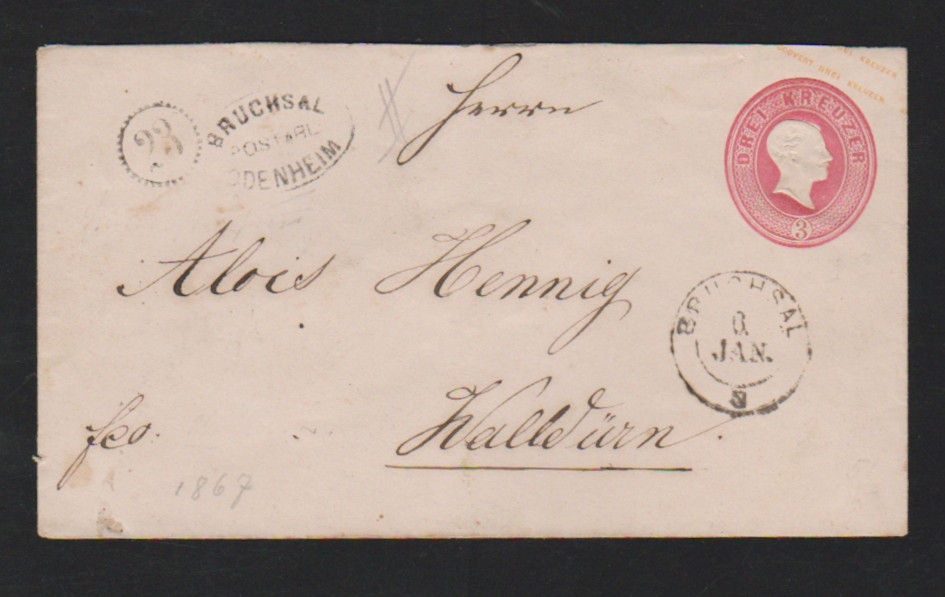 COUVERT DREI KREUZER
COUVERT DREI KREUZER
DREI KREUZER
3
23
BRUCHSAL
POSTABL.
ODENHEIM
Herrn
Alois Hennig
BRUCHSAL
6.
JAN.
fco.
Walldürn
1867